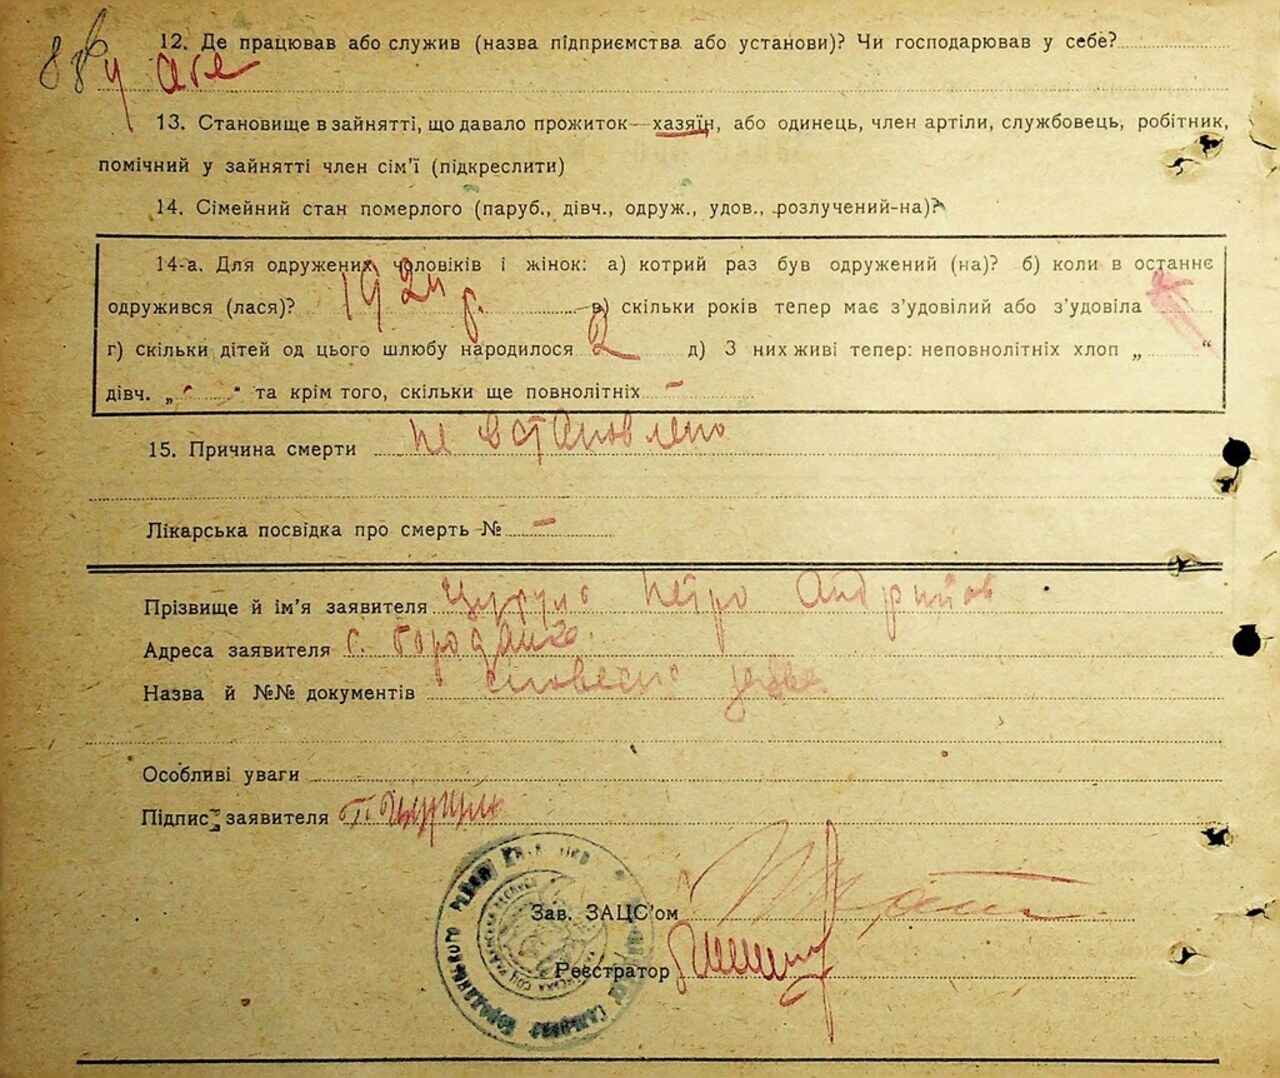 12. Де працював або служив (назва підприємства або установи)? Чи господарював у себе?
у себе
13. Становище в зайнятті, що давало прожиток—хазяїн, або одинець, член артіли, службовець, робітник,
помічний у зайнятті член сім'ї (підкреслити)
14. Сімейний стан померлого (паруб., дівч., одруж., удов., розлучений-на)?
14-а. Для одружених чоловіків і жінок: а) котрий раз був одружений (на)? б) коли в останнє
одружився (лася)? 1924 р. в) скільки років тепер має з'удовілий або з'удовіла
г) скільки дітей од цього шлюбу народилося 2 д) З них живі тепер: неповнолітніх хлоп „ “
дівч. „ - “ та крім того, скільки ще повнолітніх -
15. Причина смерти не встановлено
Лікарська посвідка про смерть № -
Прізвище й ім'я заявителя Петро Андрійов
Адреса заявителя с. Бородянка
Назва й №№ документів словесно заява
Особливі уваги
Підпис заявителя П.
Зав. ЗАЦС'ом
Реєстратор